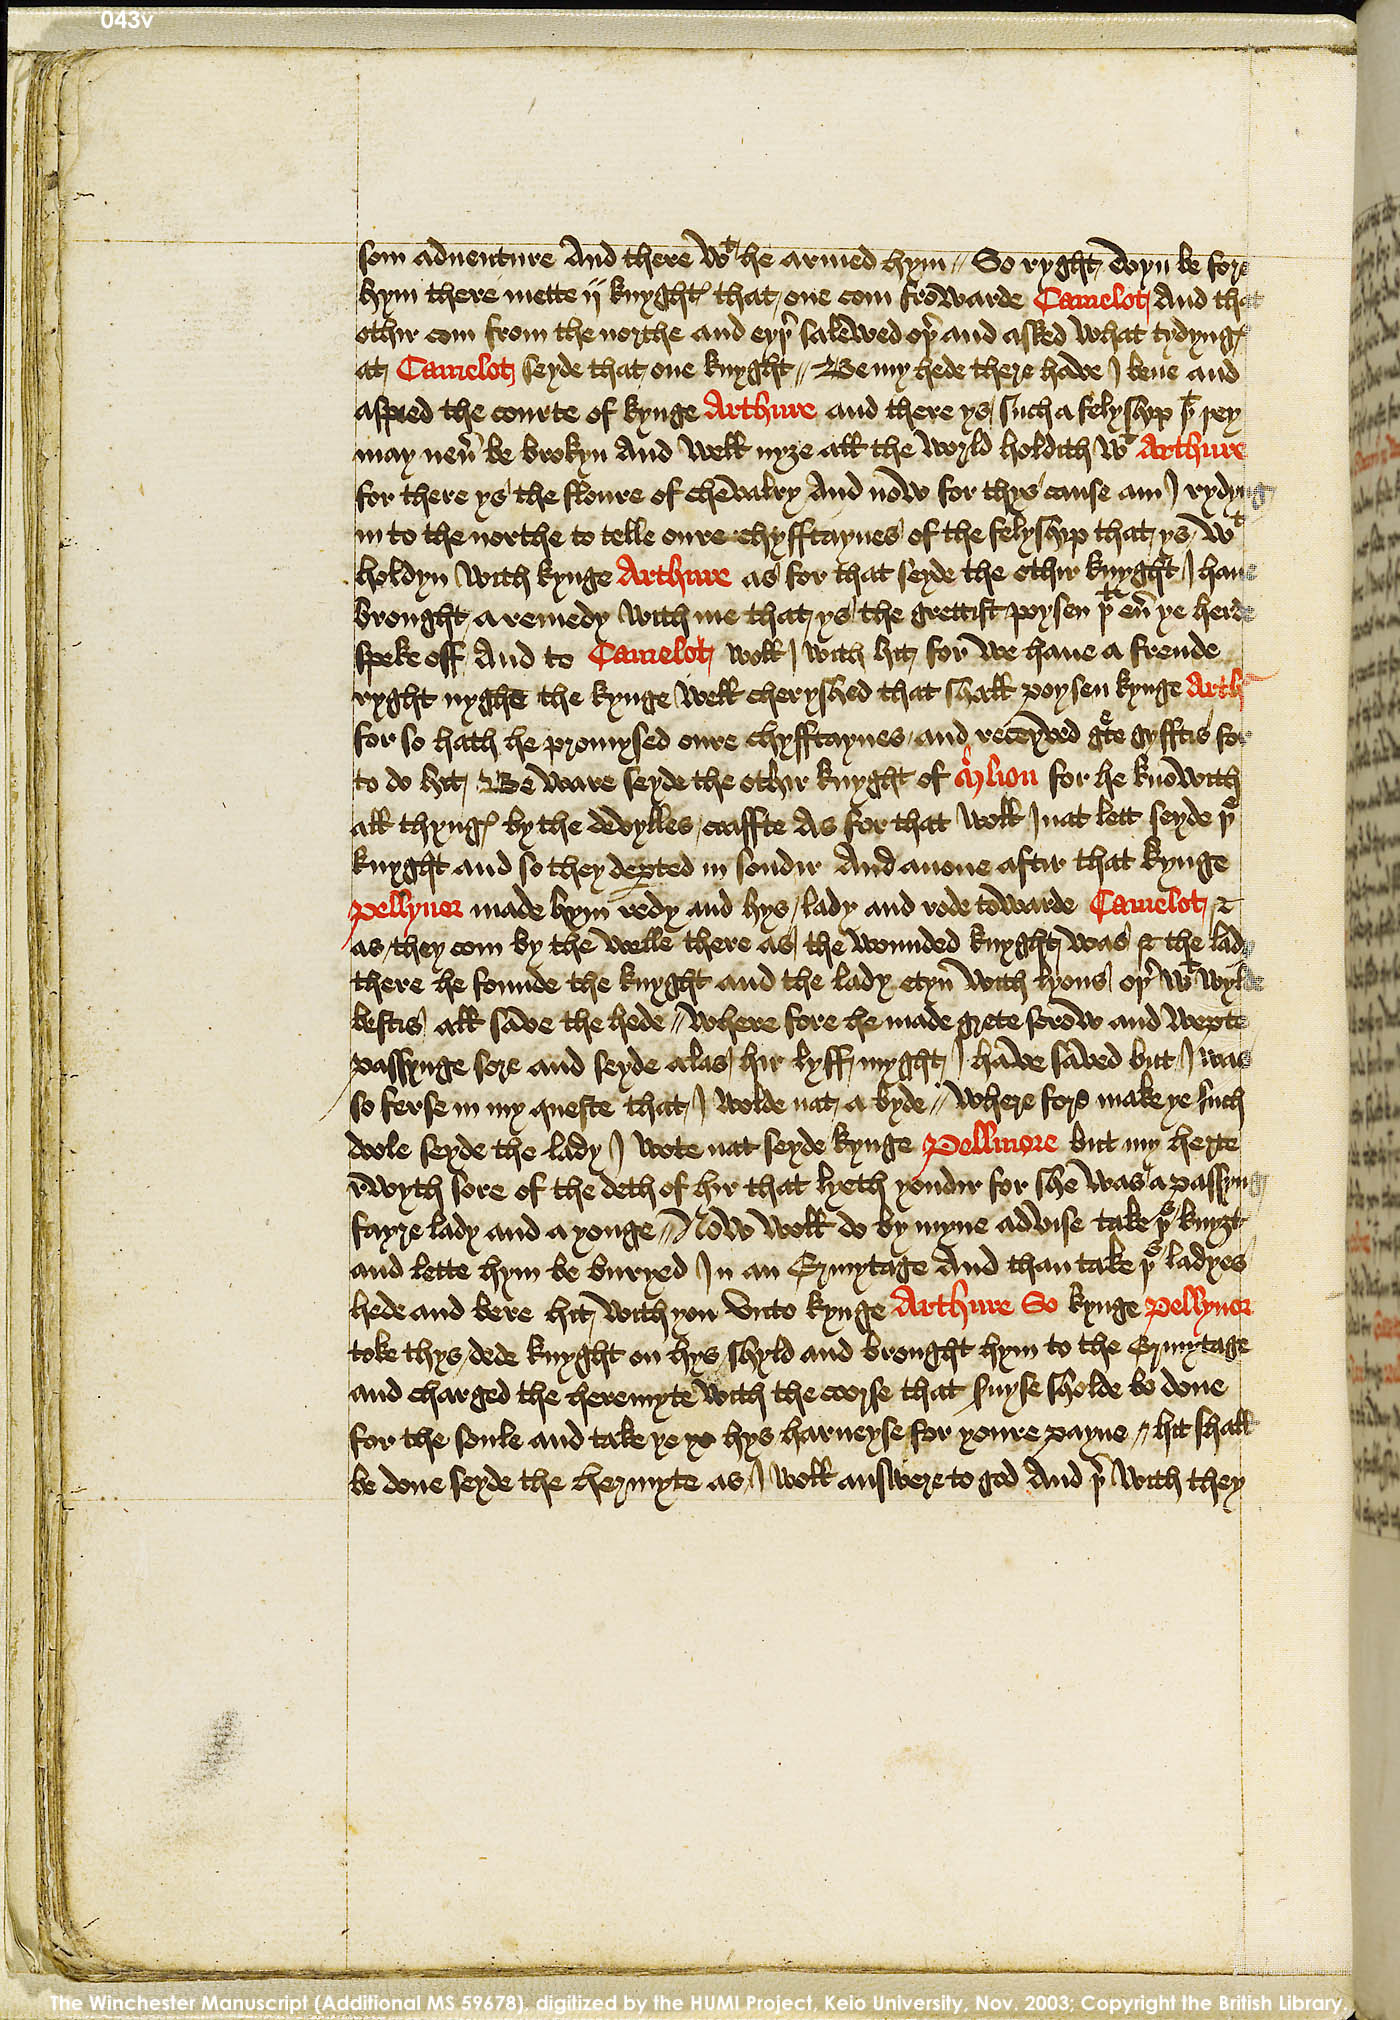 043v
som aduenture And there wᵗ he armed hym // So ryght doun be fore
hym there mette ij knyghtꝭ that one com frowarde Camelot And that
othir com from the northe and eyþ͛ salewed oþ͛ and asked what tydyngꝭ
at Camelot seyde that one knyght // Be my hede there have I bene and
aspied the courte of kynge Arthure and there ys such a felyshyp þᵗ þey
may neu͛ be brokyn And well nyȝe all the world holdith wᵗ Arthure
for there ys the floure of chevalry And now for thys cause am I rydyng
in to the northe to telle oure chyfftaynes of the felyshyp that ys wᵗ
holdyn with kynge Arthure as for that seyde the othir knyght I haue
brought a remedy with me that ys the grettist poysen þᵗ eu͛ ye herde
speke off And to Camelot woll I with hit for we haue a frende
ryght nyghe the kynge well cheryshed that shall poysen kynge Arth͛
for so hath he promysed oure chyfftaynes and receyved gͬte gyfftis for
to do hit Be ware seyde the othir knyght of M͛lion for he knowith
all thyngꝭ by the devylles craffte As for that woll I nat lett seyde þᵉ
knyght and so they deꝑted in sondir And anone aftir that kynge
Pellynor made hym redy and hys lady and rode towarde Camelot ⁊
as they com by the welle there as the wounded knyght was ⁊ the lady
there he founde the knyght and the lady etyn̄ with lyons oþ͛ wᵗ wylde
bestis all save the hede // where fore he made grete sorow and wepte
passynge sore and seyde alas hir lyff myght I have saved but I was
so ferse in my queste that I wolde nat a byde // where fore make ye such
doole seyde the lady I wote nat seyde kynge Pellinore but my herte
rwyth sore of the deth of hir that lyeth yondir for she was a passyng
fayre lady and a yonge // Now woll do by myne advise take þᵉ knyȝt
and lette hym be buryed In an Ermytage And than take þᵉ ladyes
hede and bere hit with you vnto kynge Arthure So kynge Pellynor
toke thys dede knyght on hys shyld and brought hym to the Ermytage
and charged the heremyte with the corse that suyse sholde be done
for the soule and take ye yo hys harneyse for youre payne // hit shall
be done seyde the hermyte as I woll answere to god And þ͛ with they
The Winchester Manuscript (Additional MS 59678), digitized by the HUMI Project, Keio University, Nov. 2003; Copyright the British Library.